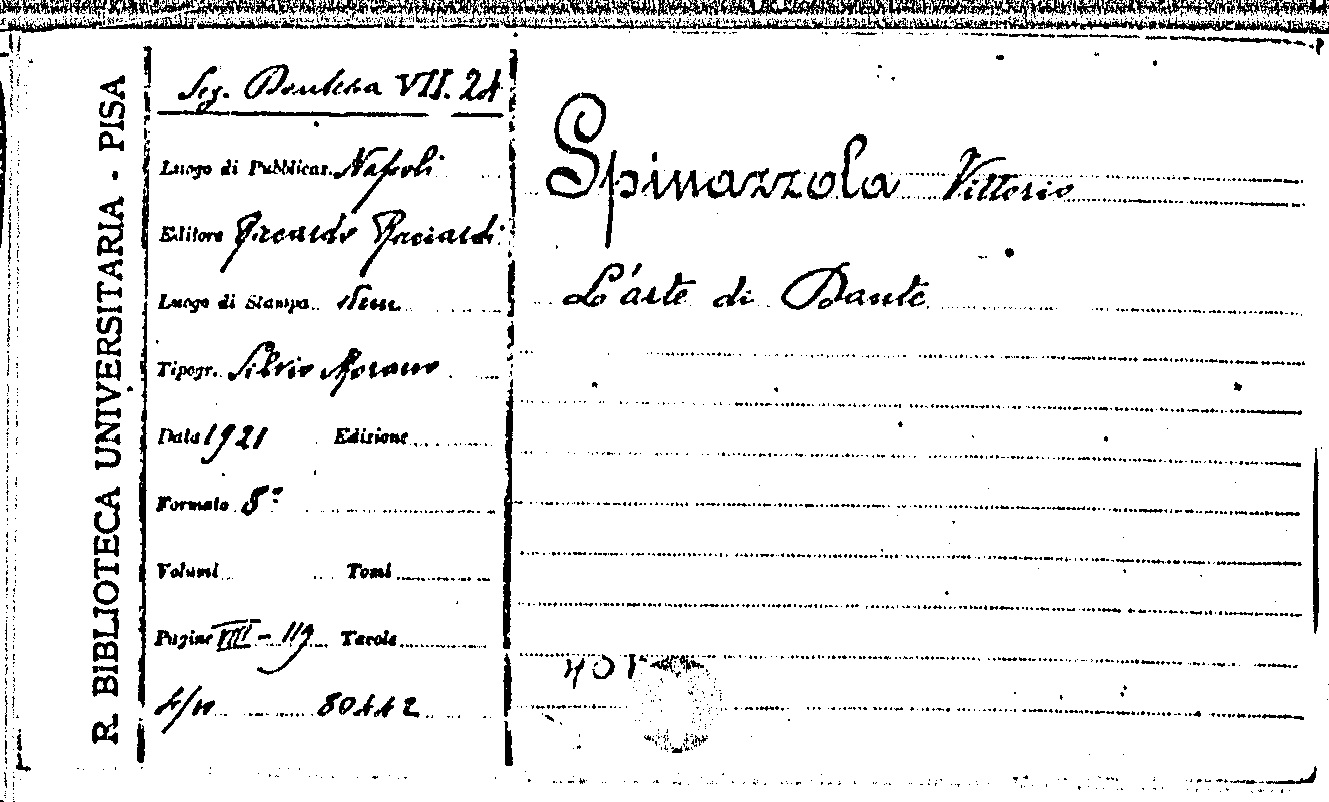 R. BIBLIOTECA UNIVERSITARIA - PISA
Seg. Dantesca VII. 24
Luogo di Pubblicaz. Napoli
Editore Riccardo Ricciardi
Luogo di Stampa
Tipogr. Silvio Morano
Data 1921 Edizione
Formato 8º
Volumi Tomi
Pagine VIII - 119 Tavole
80442
Spinazzola Vittorio
L'arte di Dante